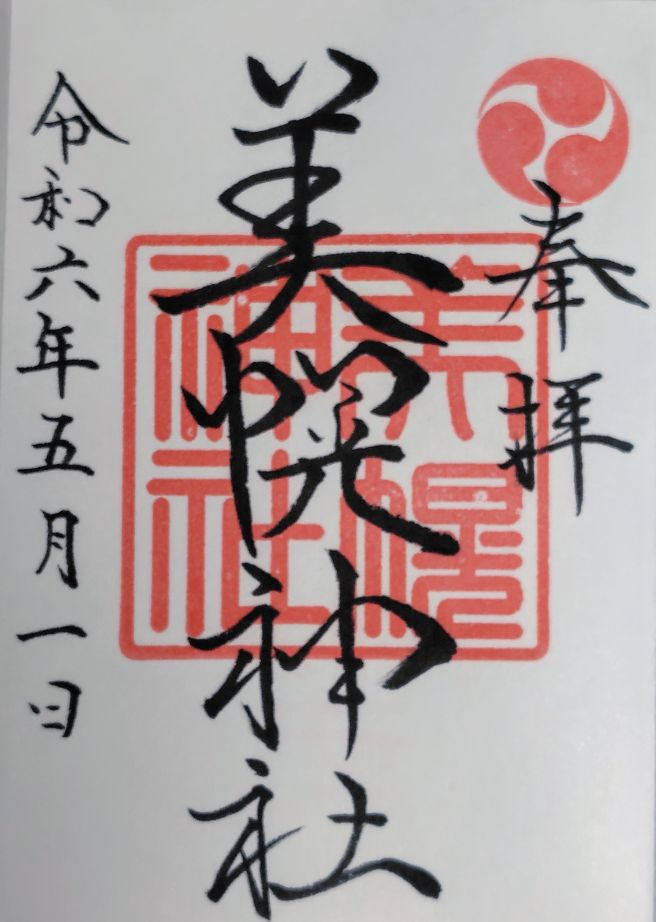 奉拝
美幌神社
令和六年五月一日
美幌
神社